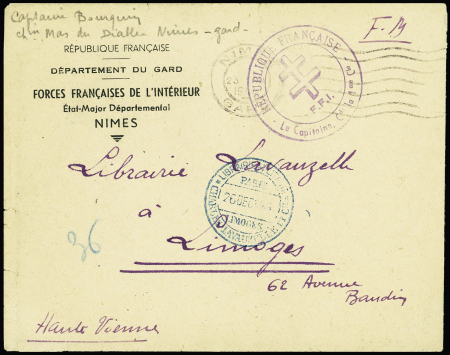 Captaine Bourguin
chin Mas du Diable Nimes - gard -
F. M
RÉPUBLIQUE FRANÇAISE
DÉPARTEMENT DU GARD
FORCES FRANÇAISES DE L'INTÉRIEUR
État-Major Départemental
NIMES
RÉPUBLIQUE FRANÇAISE
F.F.I.
Le Capitaine,
Librairie Lavauzelle
PARIS
26 DEC
LIMOGES
à
36
Limoges
62 Avenue
Baudin
Haute Vienne